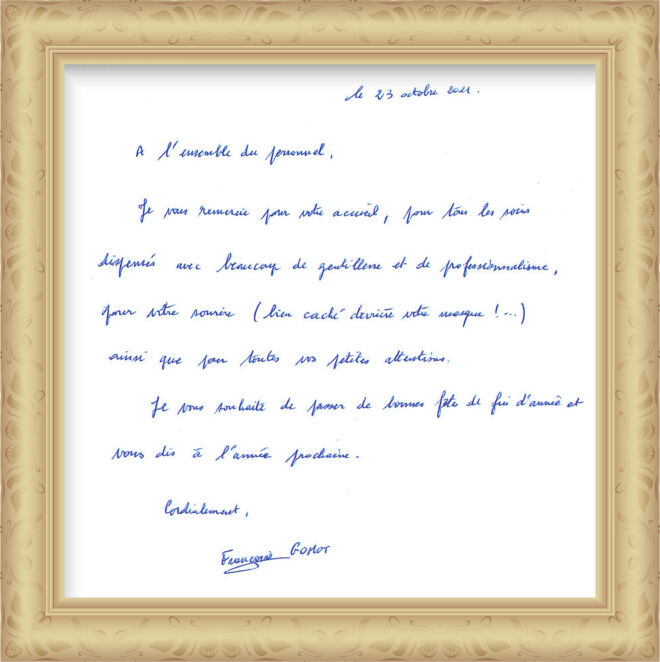 le 23 octobre 2021.
A l'ensemble du personnel,
Je vous remercie pour votre accueil, pour tous les soins
dispensés avec beaucoup de gentillesse et de professionnalisme,
pour votre sourire (bien caché derrière votre masque !...)
ainsi que pour toutes vos petites attentions.
Je vous souhaite de passer de bonnes fêtes de fin d'année et
vous dis à l'année prochaine.
Cordialement,
Françoise GOMOT